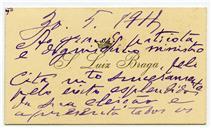 30. 5. 1911
Ao grande patriota
e dignissimo ministro
S. Luiz Braga, feli
cita muito sinceramente
pelo exito esplendido
da sua eleição e
apresenta todos os